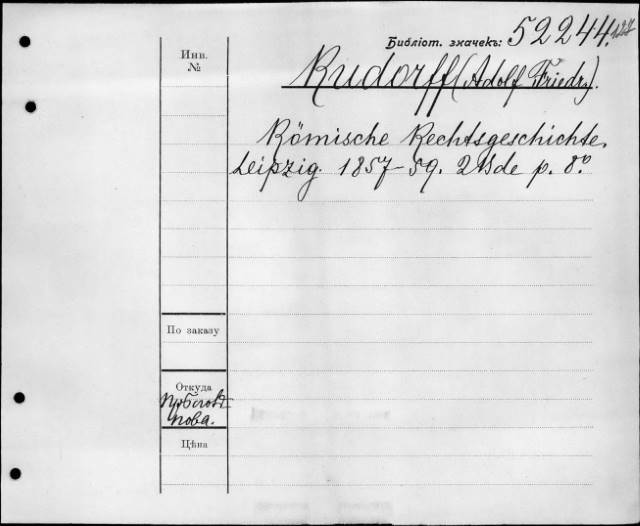 Библіот. значекъ: 52244.
Инв.
№
Rudorff (Adolf Friedr.).
Römische Rechtsgeschichte.
Leipzig. 1857-59. 2 Bde p. 8º.
По заказу
Откуда
Цѣна